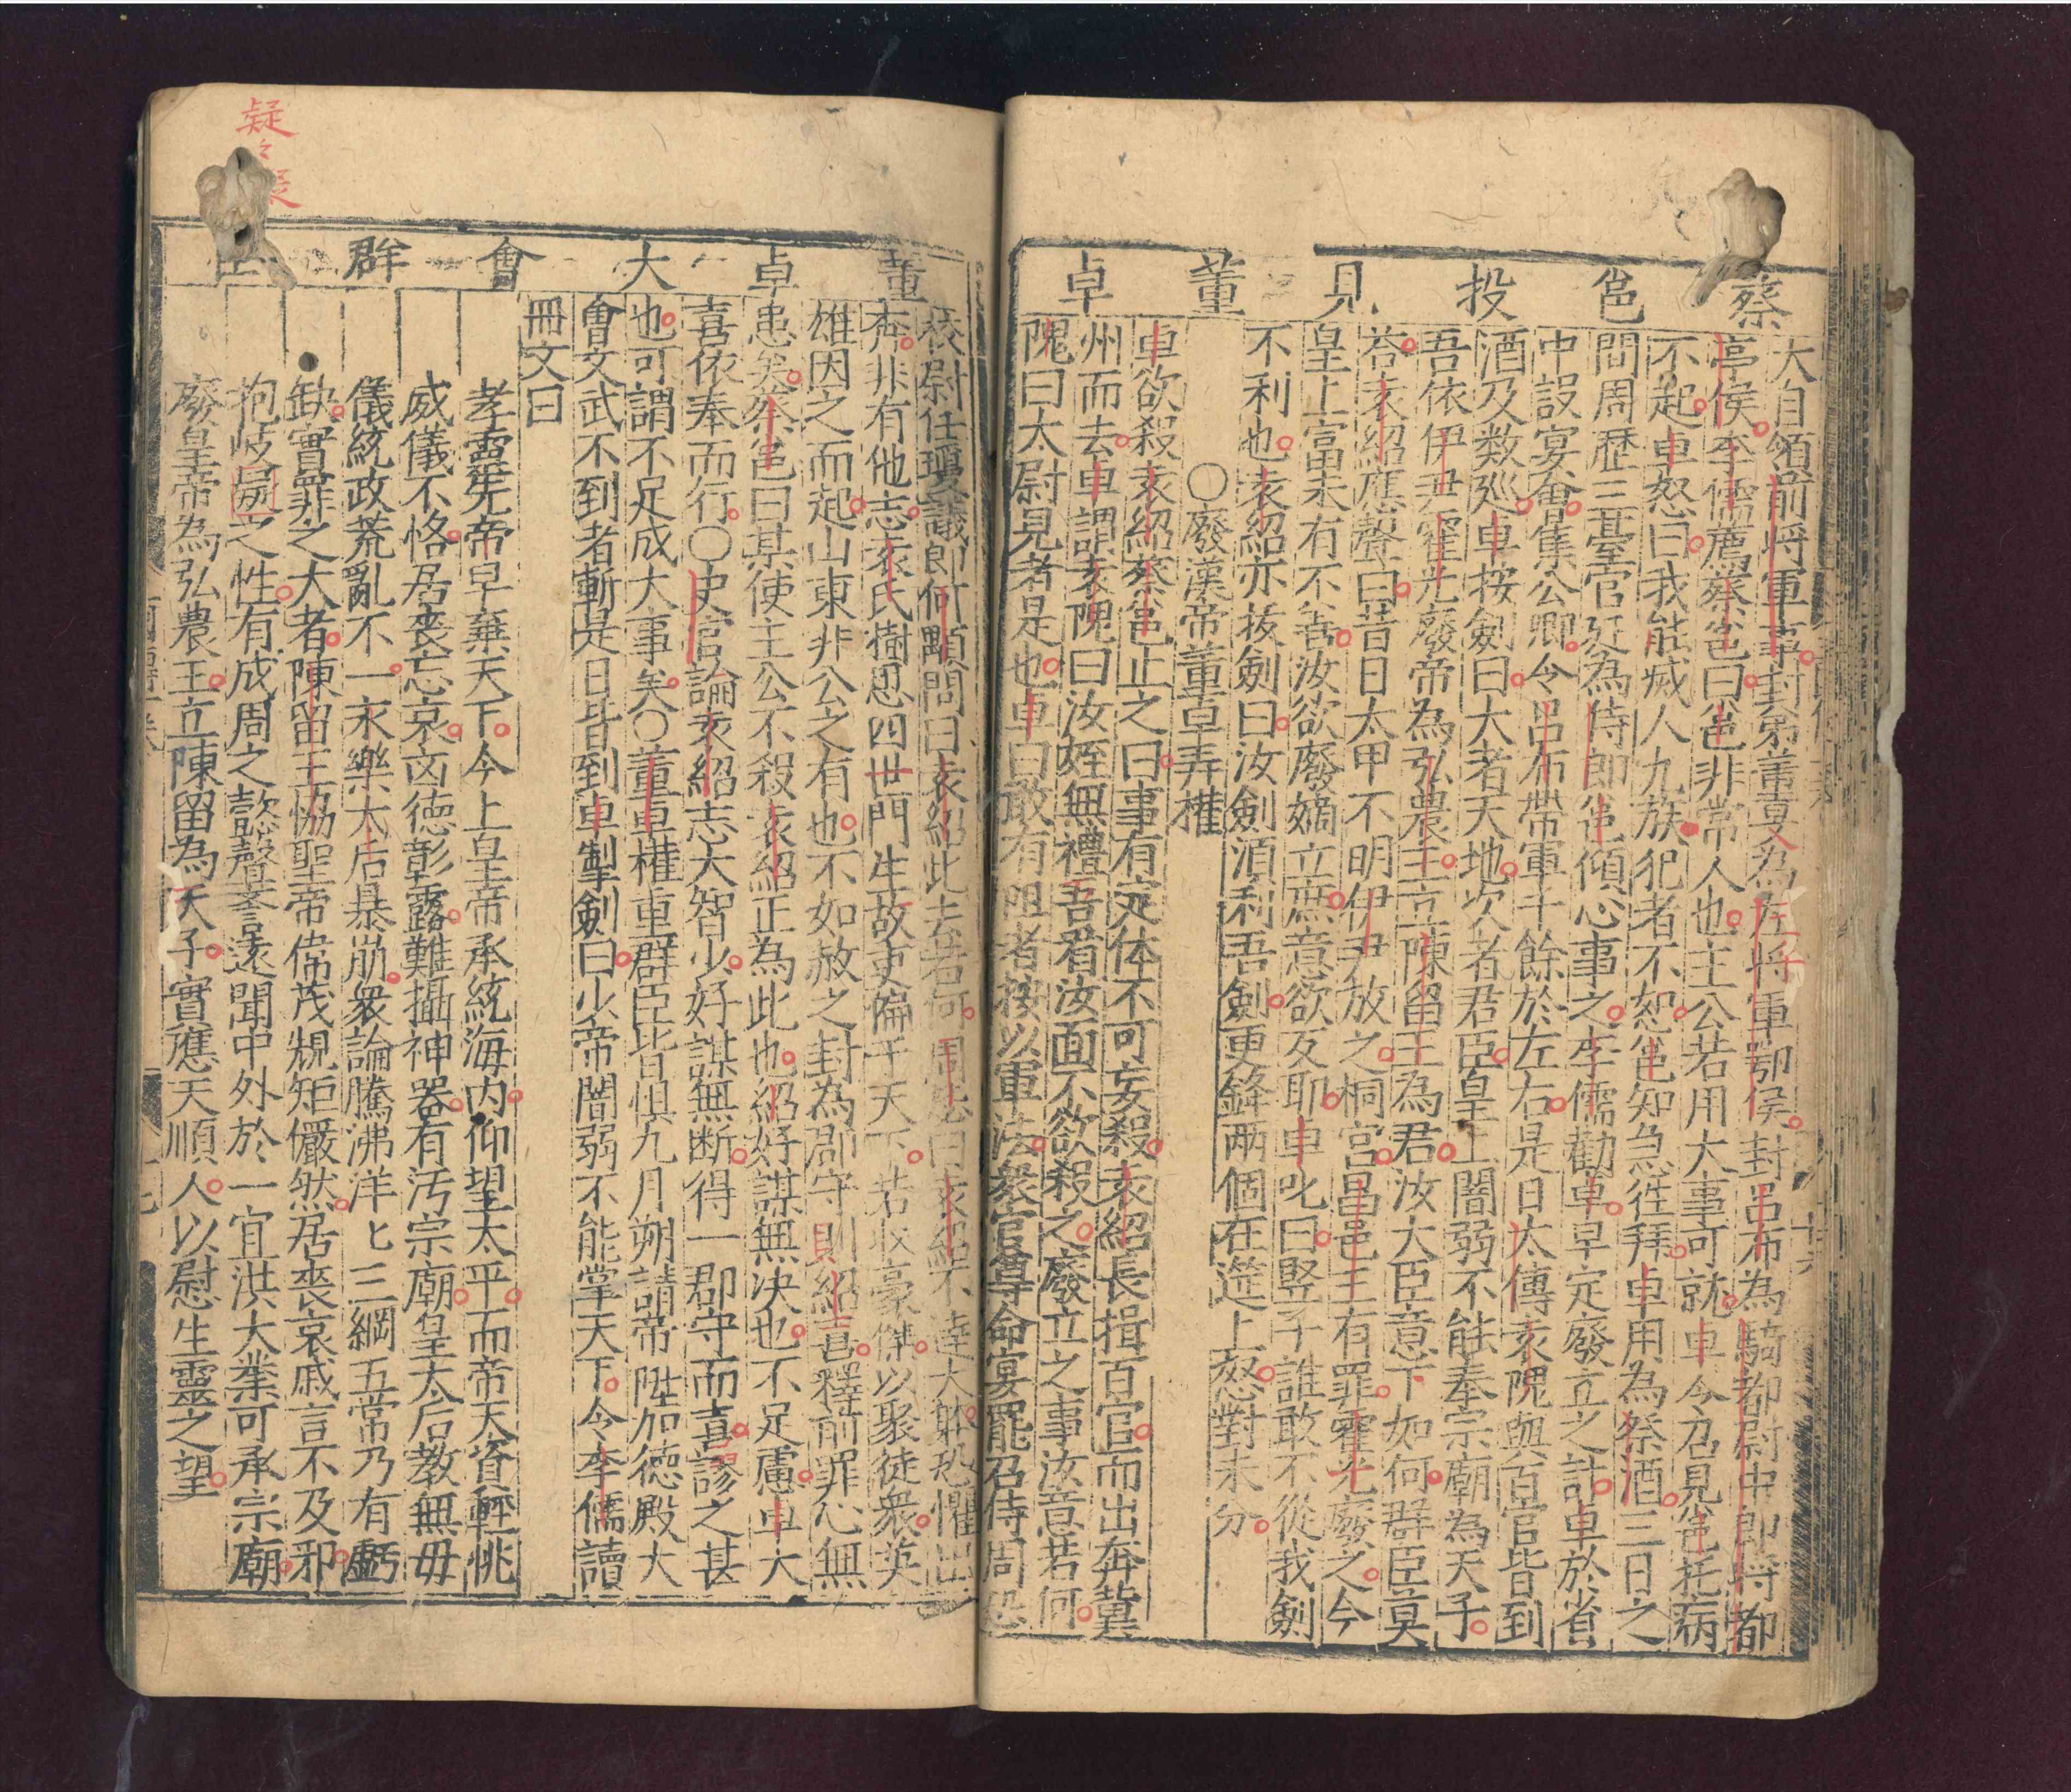 蔡邕投見董卓
大自領前将軍事封弟董旻為左將軍鄠侯封呂布為騎都尉中郎將都
亭侯李儒薦蔡邕曰邕非常人也主公若用大事可就卓令召見邕托病
不起卓怒曰我能滅人九族犯者不恕邕知急徃拜卓用為祭酒三日之
間周歷三臺官廷為侍郎邕傾心事之李儒勸卓早定廢立之計卓於省
中設宴會集公卿令呂布帶軍千餘於左右是日太傅袁隗與百官皆到
酒及数廵卓按劍曰大者天地次者君臣皇上闇弱不能奉宗廟為天子
吾依伊尹霍光廢帝為弘農王立陳留王為君汝大臣意下如何群臣莫
荅袁紹應聲曰昔日太甲不明伊尹放之桐宮昌邑王有罪霍光廢之今
皇上富未有不善汝欲廢嫡立庶意欲反耶卓叱曰竪子誰敢不從我劍
不利也袁紹亦抜劍曰汝劍須利吾劍更鋒两個在筵上怒對未分
〇廢漢帝董卓弄權
卓欲殺袁紹蔡邕止之曰事有定体不可妄殺袁紹長揖百官而出奔冀
州而去卓謂袁隗曰汝姪無禮吾看汝面不欲殺之廢立之事汝意若何
隗曰太尉見者是也卓曰敢有阻者按以軍法衆官尊命宴罷召侍周毖
董卓大會群
校尉伍瓊議郎何顒問曰袁紹此去若何周毖曰袁紹不達大躰恐懼出
奔非有他志袁氏樹恩四世門生故吏徧于天下若收豪傑以聚徒衆英
雄因之而起山東非公之有也不如赦之封為郡守則紹喜釋前罪心無
患矣蔡邕曰某使主公不殺袁紹正為此也紹好謀無决也不足慮卓大
喜依奉而行〇史官論袁紹志大智少好謀無断得一郡守而喜謬之甚
也可謂不足成大事矣〇董卓權重群臣皆惧九月朔請帝陞加德殿大
會文武不到者斬是日皆到卓掣劍曰少帝闇弱不能掌天下令李儒讀
冊文曰
孝靈先帝早棄天下今上皇帝承統海内仰望太平而帝天資輕恌
威儀不恪居喪忘哀凶德彰露難攝神器有污宗廟皇太后教無毋
儀統政荒亂不一永樂太后暴崩衆論騰沸洋匕三綱五常乃有虧
缺實曾罪之大者陳留王恊聖帝偉茂規矩儼然居喪哀戚言不及邪
抱岐嶷之性有成周之懿聲譽遠聞中外於一宜洪大業可承宗廟
廢皇帝為弘農王立陳留為天子實應天順人以慰生靈之望
疑